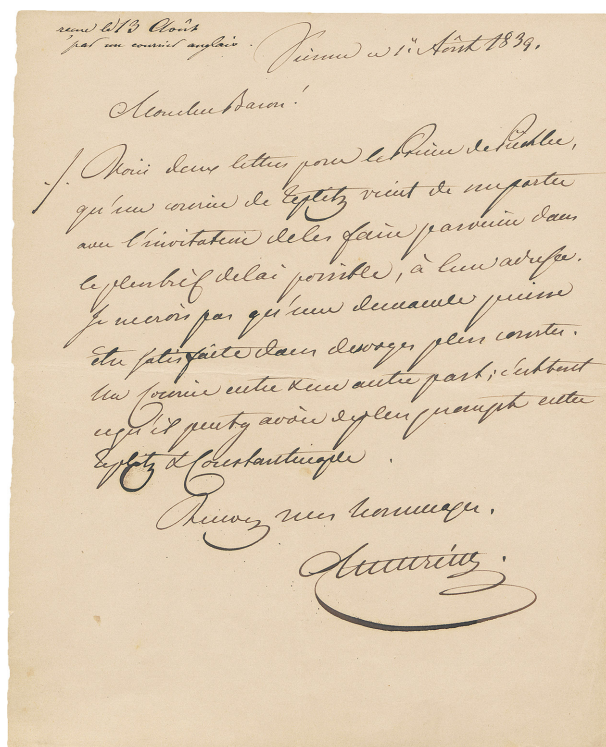 recue le 13 Août
par un courrier anglais.
Vienne ce 1er Août 1839.
Mon cher Baron!
Voici deux lettres pour le Prince de Puckler,
qu'un courrier de Teplitz vient de m'apporter
avec l'invitation de les faire parvenir dans
le plus bref delai possible, à leur adresse.
Je ne crois pas qu'une demande puisse
être satisfaite dans des pages plus courtes.
Un Courrier entre & un autre part; c'est tout
ce qu'il peut y avoir de plus prompt entre
Teplitz & Constantinople.
Recevez mes hommages.